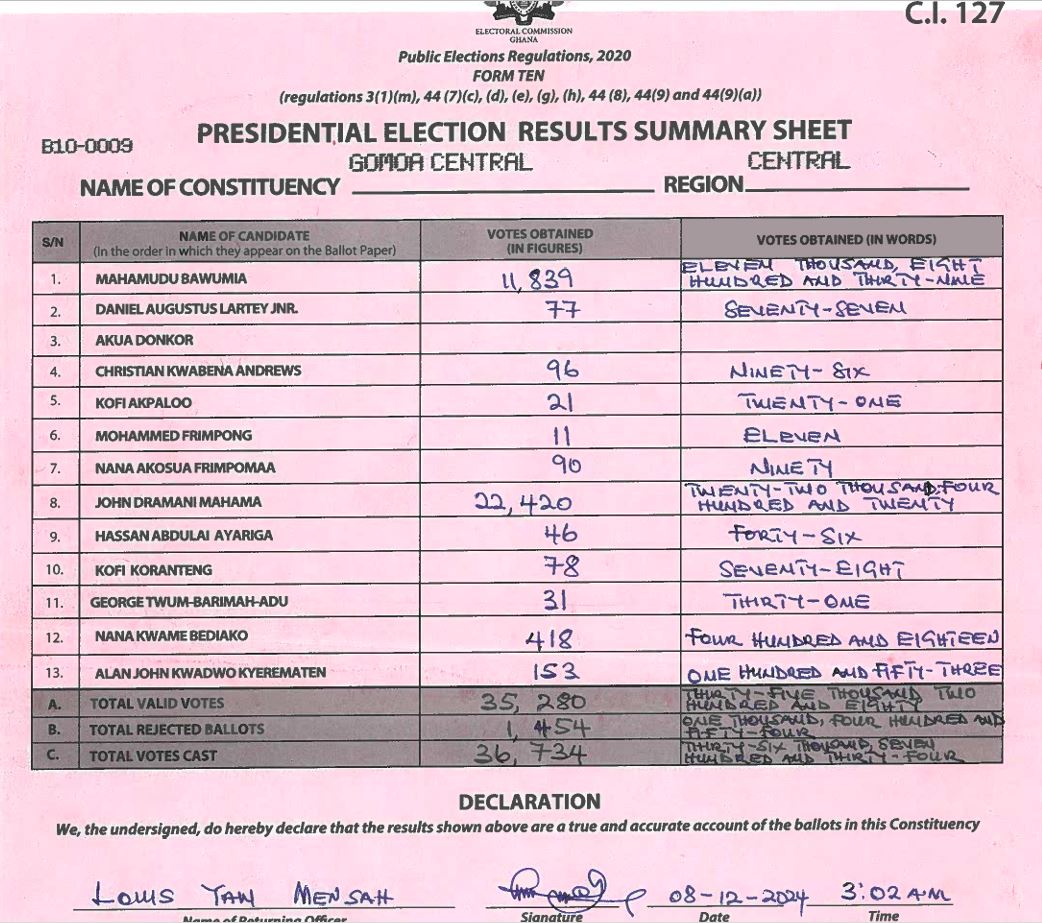 C.I. 127
ELECTORAL COMMISSION
GHANA
Public Elections Regulations, 2020
FORM TEN
(regulations 3(1)(m), 44 (7)(c), (d), (e), (g), (h), 44 (8), 44(9) and 44(9)(a))
PRESIDENTIAL ELECTION RESULTS SUMMARY SHEET
B10-0009
GOMOA CENTRAL CENTRAL
NAME OF CONSTITUENCY REGION
S/N NAME OF CANDIDATE (In the order in which they appear on the Ballot Paper) VOTES OBTAINED (IN FIGURES) VOTES OBTAINED (IN WORDS)
1. MAHAMUDU BAWUMIA 11,839 ELEVEN THOUSAND, EIGHT HUNDRED AND THIRTY-NINE
2. DANIEL AUGUSTUS LARTEY JNR. 77 SEVENTY-SEVEN
3. AKUA DONKOR
4. CHRISTIAN KWABENA ANDREWS 96 NINETY-SIX
5. KOFI AKPALOO 21 TWENTY-ONE
6. MOHAMMED FRIMPONG 11 ELEVEN
7. NANA AKOSUA FRIMPOMAA 90 NINETY
8. JOHN DRAMANI MAHAMA 22,420 TWENTY-TWO THOUSAND, FOUR HUNDRED AND TWENTY
9. HASSAN ABDULAI AYARIGA 46 FORTY-SIX
10. KOFI KORANTENG 78 SEVENTY-EIGHT
11. GEORGE TWUM-BARIMAH-ADU 31 THIRTY-ONE
12. NANA KWAME BEDIAKO 418 FOUR HUNDRED AND EIGHTEEN
13. ALAN JOHN KWADWO KYEREMATEN 153 ONE HUNDRED AND FIFTY-THREE
A. TOTAL VALID VOTES 35,280 THIRTY-FIVE THOUSAND TWO HUNDRED AND EIGHTY
B. TOTAL REJECTED BALLOTS 1,454 ONE THOUSAND, FOUR HUNDRED AND FIFTY-FOUR
C. TOTAL VOTES CAST 36,734 THIRTY-SIX THOUSAND, SEVEN HUNDRED AND THIRTY-FOUR
DECLARATION
We, the undersigned, do hereby declare that the results shown above are a true and accurate account of the ballots in this Constituency
LOUIS YAW MENSAH 08-12-2024 3:02 AM
Name of Returning Officer Signature Date Time